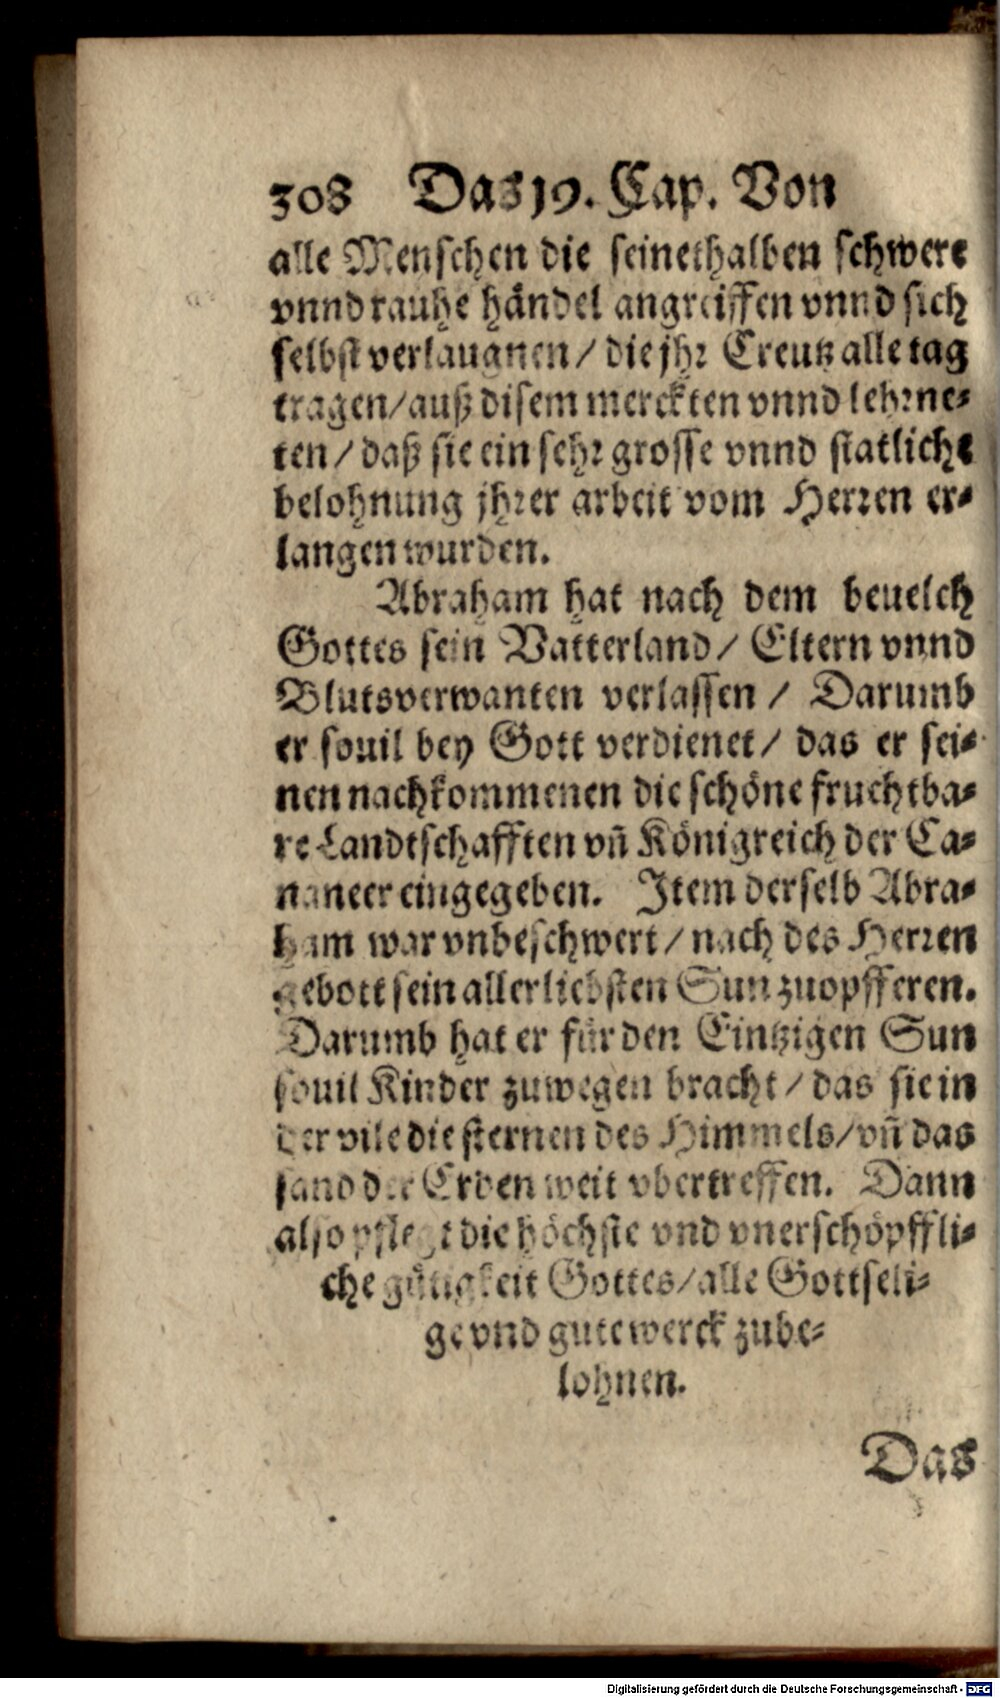 308 Das 19. Cap. Von
alle Menschen die seinethalben schwere
vnnd rauhe händel angreiffen vnnd sich
selbst verlaugnen / die jhr Creutz alle tag
tragen / auß disem merckten vnnd lehrne-
ten / daß sie ein sehr grosse vnnd statliche
belohnung jhrer arbeit vom Herren er-
langen wurden.
Abraham hat nach dem beuelch
Gottes sein Vatterland / Eltern vnnd
Blutsverwanten verlassen / Darumb
er souil bey Gott verdienet / das er sei-
nen nachkommenen die schöne fruchtba-
re Landtschafften vñ Königreich der Ca-
naneer eingegeben. Item derselb Abra-
ham war vnbeschwert / nach des Herren
gebott sein allerliebsten Sun zuopfferen.
Darumb hat er für den Eintzigen Sun
souil Kinder zuwegen bracht / das sie in
der vile die sternen des Himmels / vñ das
sand der Erden weit vbertreffen. Dann
also pflegt die höchste vnd vnerschöpffli-
che gütigkeit Gottes / alle Gottseli-
ge vnd gute werck zube-
lohnen.
Das
Digitalisierung gefördert durch die Deutsche Forschungsgemeinschaft - DFG